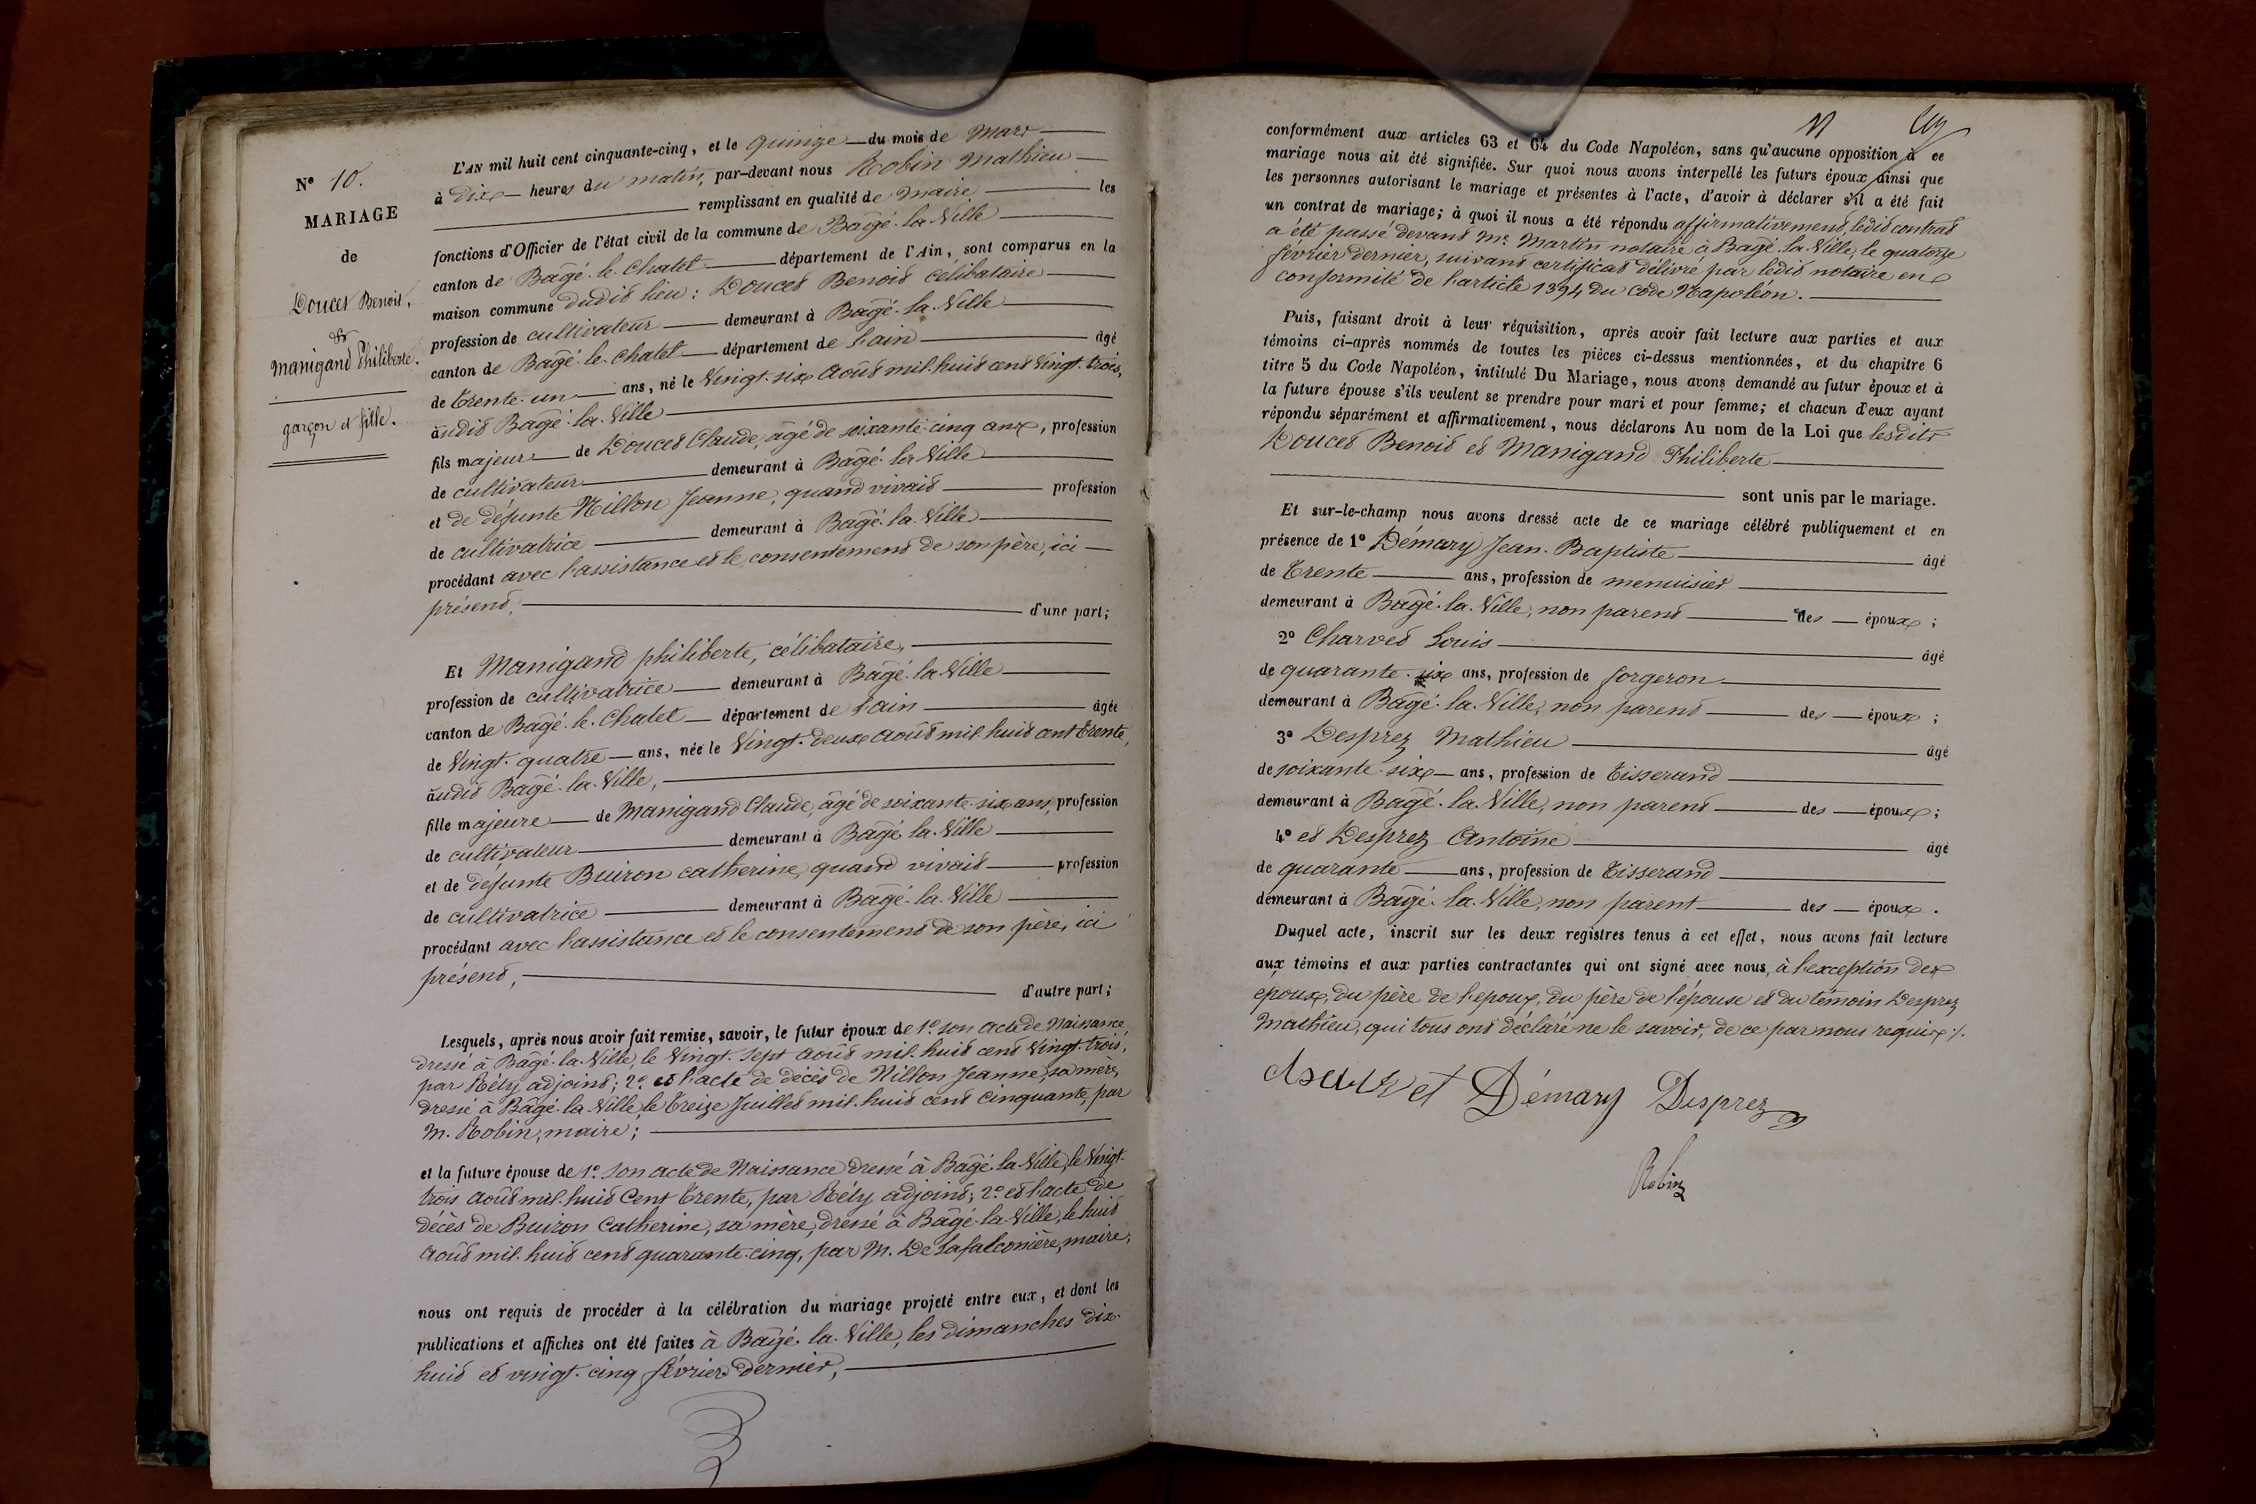 N° 10.
MARIAGE
de
Doucet Benoit,
et
Manigand Philiberte.
garçon et fille.
L'AN mil huit cent cinquante-cinq, et le quinze du mois de Mars
à dix heures du matin, par-devant nous Robin Mathieu
remplissant en qualité de Maire les
fonctions d'Officier de l'état civil de la commune de Bâgé-la-Ville
canton de Bâgé-le-Chatel département de l'Ain, sont comparus en la
maison commune dudit lieu : Doucet Benoit célibataire
profession de cultivateur demeurant à Bâgé-la-Ville
canton de Bâgé-le-Chatel département de l'ain âgé
de trente-un ans, né le vingt-six août mil-huit cent vingt-trois,
audit Bâgé-la-Ville
fils majeur de Doucet Claude, âgé de soixante-cinq ans, profession
de cultivateur demeurant à Bâgé-la-Ville
et de défunte Nillon Jeanne, quand vivait profession
de cultivatrice demeurant à Bâgé-la-Ville
procédant avec l'assistance et le consentement de son père, ici
présent, d'une part;
Et Manigand philiberte, célibataire,
profession de cultivatrice demeurant à Bâgé-la-Ville
canton de Bâgé-le-Chatel département de l'ain âgée
de vingt-quatre ans, née le vingt-deux août mil-huit cent trente,
audit Bâgé-la-Ville,
fille majeure de Manigand Claude, âgé de soixante-six ans, profession
de cultivateur demeurant à Bâgé-la-Ville
et de défunte Buiron catherine, quand vivait profession
de cultivatrice demeurant à Bâgé-la-Ville
procédant avec l'assistance et le consentement de son père, ici
présent, d'autre part;
Lesquels, après nous avoir fait remise, savoir, le futur époux de 1° son acte de Naissance,
dressé à Bâgé-la-Ville, le vingt-sept août mil-huit cent vingt-trois,
par Réty, adjoint; 2° et l'acte de décès de Nillon Jeanne, sa mère,
dressé à Bâgé-la-Ville le treize Juillet mil-huit cent cinquante, par
M. Robin, maire;
et la future épouse de 1° son acte de Naissance dressé à Bâgé-la-Ville, le vingt-
trois août mil-huit Cent trente, par Réty, adjoint; 2° et l'acte de
décès de Buiron Catherine, sa mère, dressé à Bâgé-la-Ville, le huit
août mil-huit cent quarante-cinq, par M. De Lafalconière, maire;
nous ont requis de procéder à la célébration du mariage projeté entre eux, et dont les
publications et affiches ont été faites à Bâgé-la-Ville, les dimanches dix-
huit et vingt-cinq février dernier,
conformément aux articles 63 et 64 du Code Napoléon, sans qu'aucune opposition à ce
mariage nous ait été signifiée. Sur quoi nous avons interpellé les futurs époux ainsi que
les personnes autorisant le mariage et présentes à l'acte, d'avoir à déclarer s'il a été fait
un contrat de mariage; à quoi il nous a été répondu affirmativement, ledit contrat
a été passé devant Me Martin notaire à Bâgé-la-Ville, le quatorze
février dernier, suivant certificat délivré par ledit notaire en
conformité de l'article 1394 du code Napoléon.
Puis, faisant droit à leur réquisition, après avoir fait lecture aux parties et aux
témoins ci-après nommés de toutes les pièces ci-dessus mentionnées, et du chapitre 6
titre 5 du Code Napoléon, intitulé Du Mariage, nous avons demandé au futur époux et à
la future épouse s'ils veulent se prendre pour mari et pour femme; et chacun d'eux ayant
répondu séparément et affirmativement, nous déclarons Au nom de la Loi que lesdits
Doucet Benoit et Manigand Philiberte
sont unis par le mariage.
Et sur-le-champ nous avons dressé acte de ce mariage célébré publiquement et en
présence de 1° Démary Jean-Baptiste âgé
de trente ans, profession de menuisier
demeurant à Bâgé-la-Ville, non parent des époux;
2° Charvet Louis âgé
de quarante-six ans, profession de forgeron
demeurant à Bâgé-la-Ville, non parent des époux;
3° Desprez Mathieu âgé
de soixante-six ans, profession de tisserand
demeurant à Bâgé-la-Ville, non parent des époux;
4° et Desprez Antoine âgé
de quarante ans, profession de tisserand
demeurant à Bâgé-la-Ville, non parent des époux.
Duquel acte, inscrit sur les deux registres tenus à cet effet, nous avons fait lecture
aux témoins et aux parties contractantes qui ont signé avec nous, à l'exception des
époux, du père de l'époux, du père de l'épouse et du témoin Desprez
Mathieu, qui tous ont déclaré ne le savoir, de ce par nous requis ./.
Démary Desprez
Robin